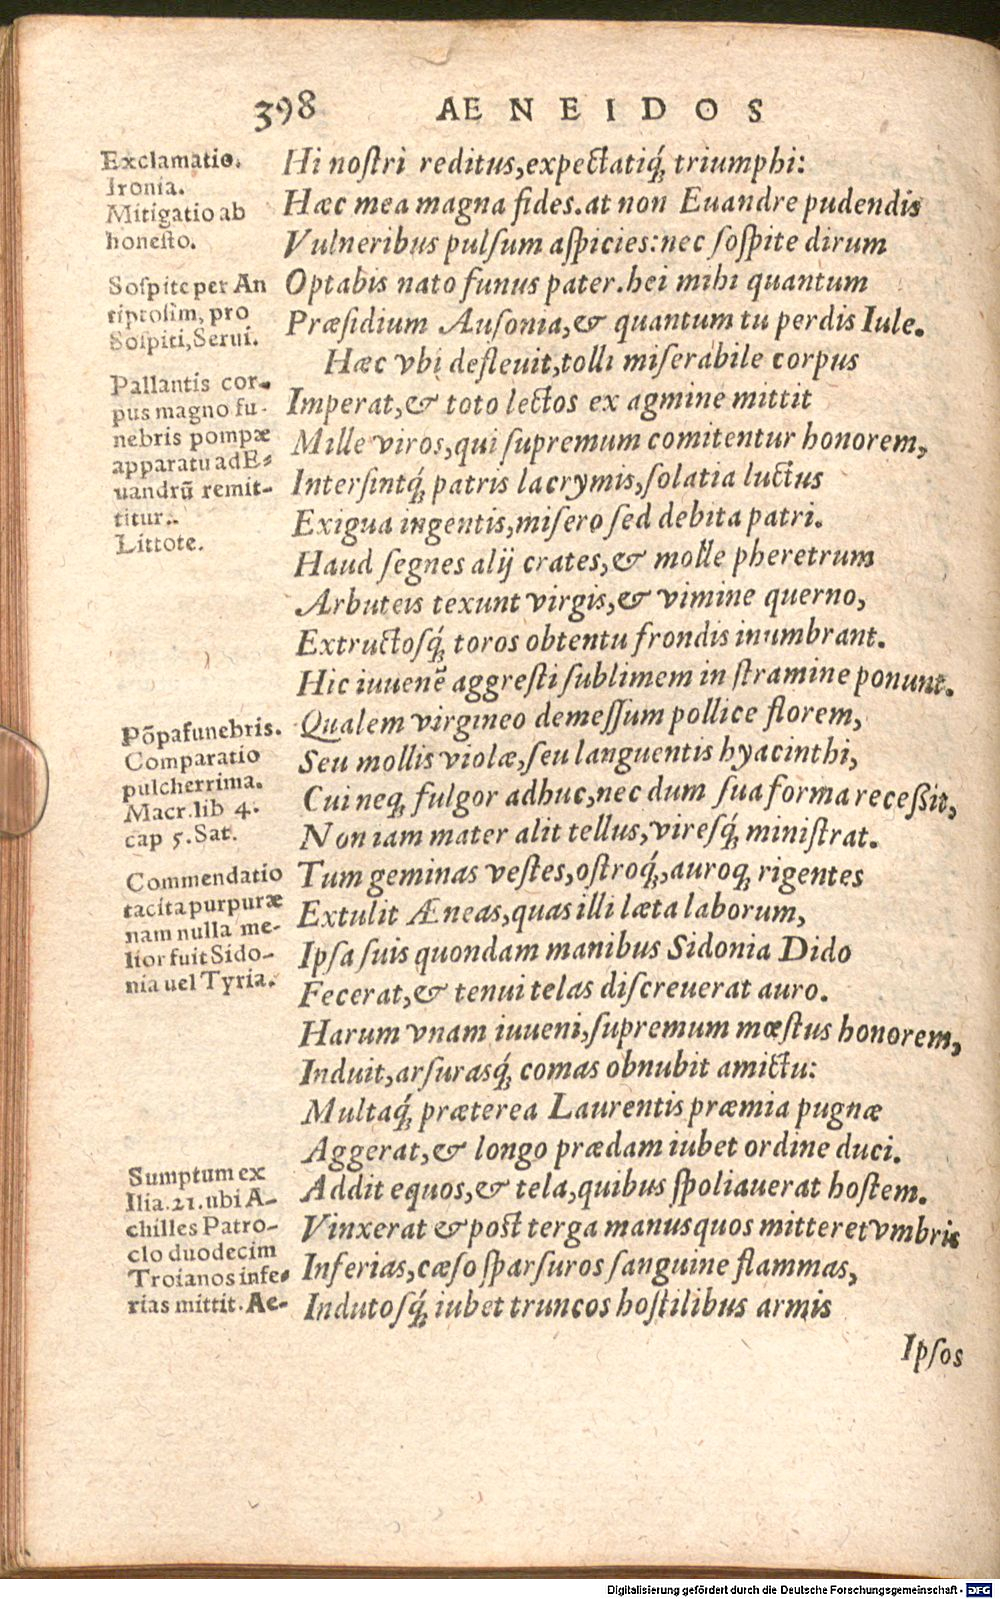 398 AENEIDOS
Exclamatio.
Ironia.
Mitigatio ab
honesto.
Sospite per An
tiptosim, pro
Sospiti, Serui.
Pallantis cor-
pus magno fu-
nebris pompæ
apparatu ad E-
uandrū remit-
titur.
Littote.
Põpa funebris.
Comparatio
pulcherrima.
Macr. lib 4.
cap 5. Sat.
Commendatio
tacita purpuræ
nam nulla me-
lior fuit Sido-
nia uel Tyria.
Sumptum ex
Ilia. 21. ubi A-
chilles Patro-
clo duodecim
Troianos infe-
rias mittit. Ae-
Hi nostri reditus, expectatiq́; triumphi:
Hæc mea magna fides. at non Euandre pudendis
Vulneribus pulsum aspicies: nec sospite dirum
Optabis nato funus pater. hei mihi quantum
Præsidium Ausonia, & quantum tu perdis Iule.
Hæc vbi defleuit, tolli miserabile corpus
Imperat, & toto lectos ex agmine mittit
Mille viros, qui supremum comitentur honorem,
Intersintq́; patris lacrymis, solatia luctus
Exigua ingentis, misero sed debita patri.
Haud segnes alij crates, & molle pheretrum
Arbuteis texunt virgis, & vimine querno,
Extructosq́; toros obtentu frondis inumbrant.
Hic iuuenē aggresti sublimem in stramine ponunt.
Qualem virgineo demessum pollice florem,
Seu mollis violæ, seu languentis hyacinthi,
Cui neq; fulgor adhuc, nec dum sua forma recessit,
Non iam mater alit tellus, viresq́; ministrat.
Tum geminas vestes, ostroq́;, auroq; rigentes
Extulit Æneas, quas illi læta laborum,
Ipsa suis quondam manibus Sidonia Dido
Fecerat, & tenui telas discreuerat auro.
Harum vnam iuueni, supremum mœstus honorem,
Induit, arsurasq́; comas obnubit amictu:
Multaq́; præterea Laurentis præmia pugnæ
Aggerat, & longo prædam iubet ordine duci.
Addit equos, & tela, quibus spoliauerat hostem.
Vinxerat & post terga manus quos mitteret vmbris
Inferias, cæso sparsuros sanguine flammas,
Indutosq́; iubet truncos hostilibus armis
Ipsos
Digitalisierung gefördert durch die Deutsche Forschungsgemeinschaft - DFG